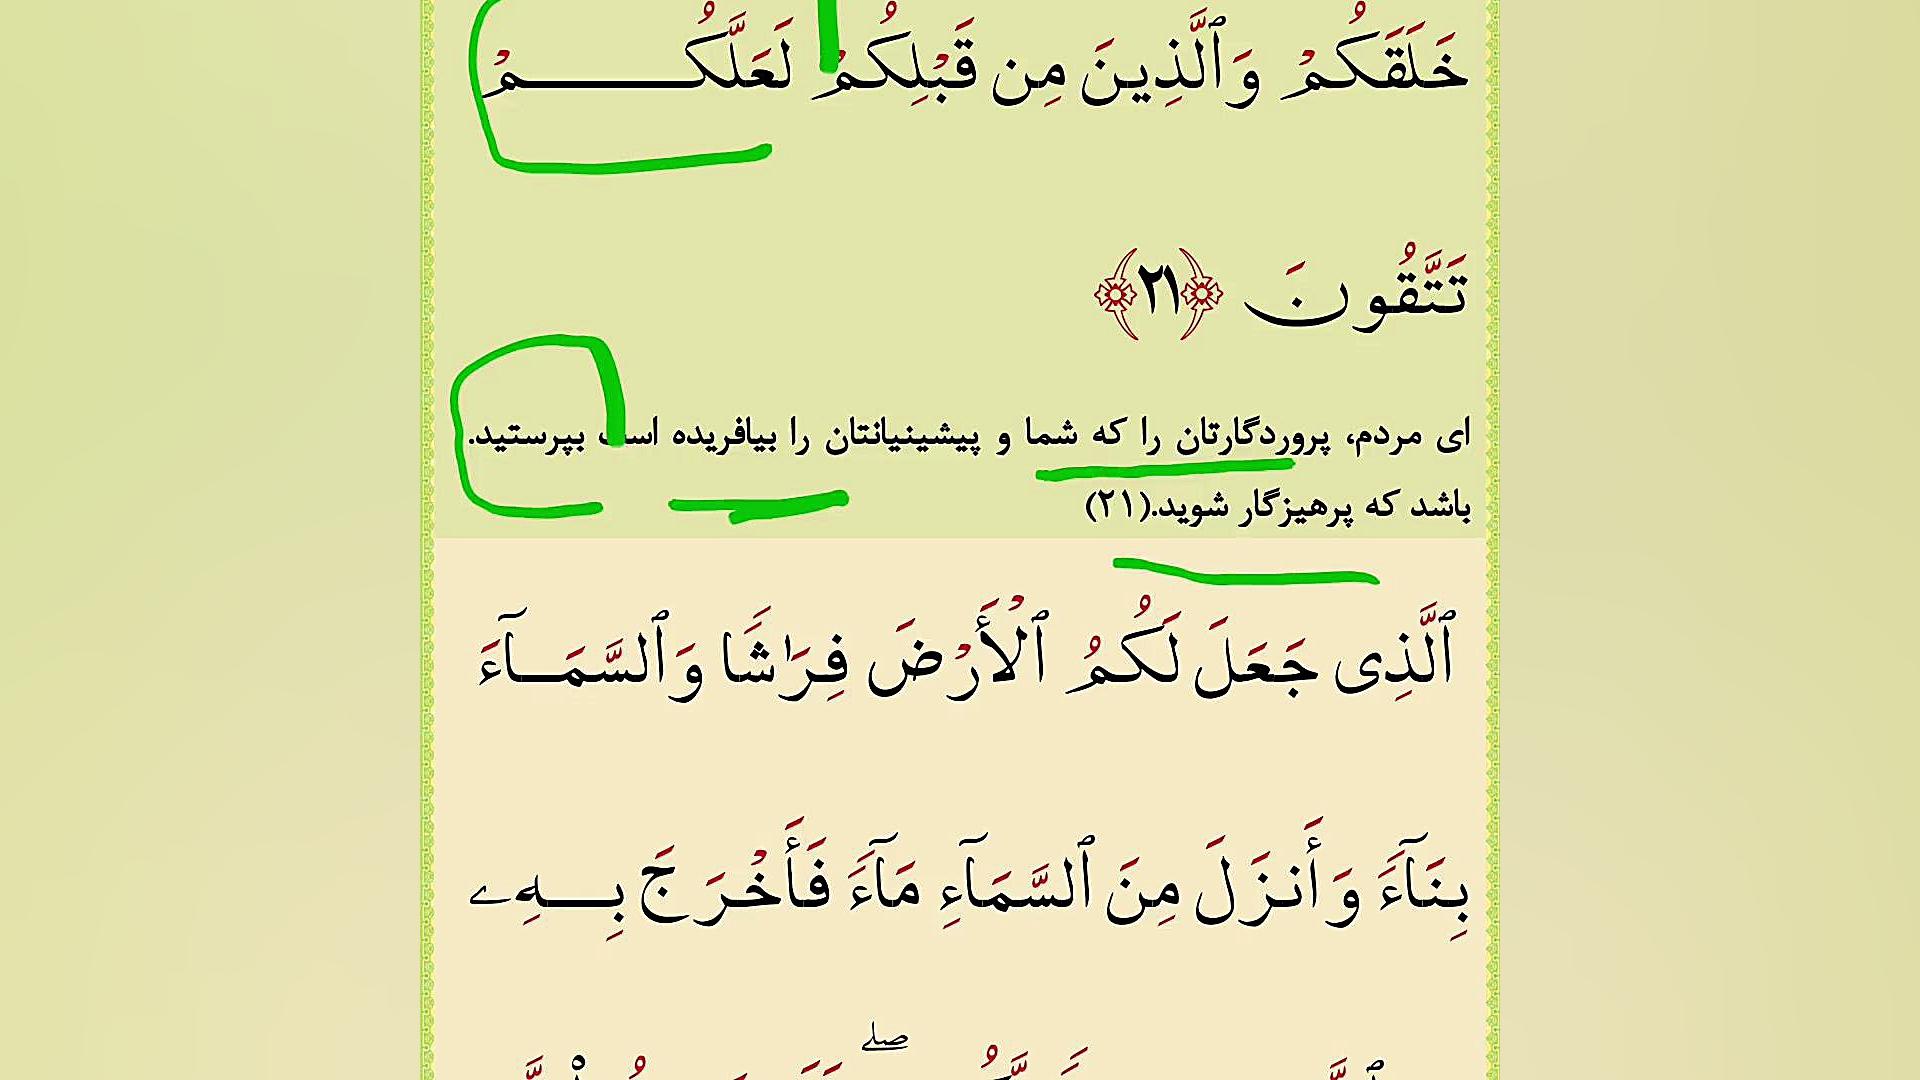 خَلَقَكُمْ وَٱلَّذِينَ مِن قَبْلِكُمْ لَعَلَّكُمْ
تَتَّقُونَ ﴿٢١﴾
ای مردم، پروردگارتان را که شما و پیشینیانتان را بیافریده است بپرستید.
باشد که پرهیزگار شوید.(٢١)
ٱلَّذِى جَعَلَ لَكُمُ ٱلْأَرْضَ فِرَٰشًا وَٱلسَّمَآءَ
بِنَآءً وَأَنزَلَ مِنَ ٱلسَّمَآءِ مَآءً فَأَخْرَجَ بِهِۦ